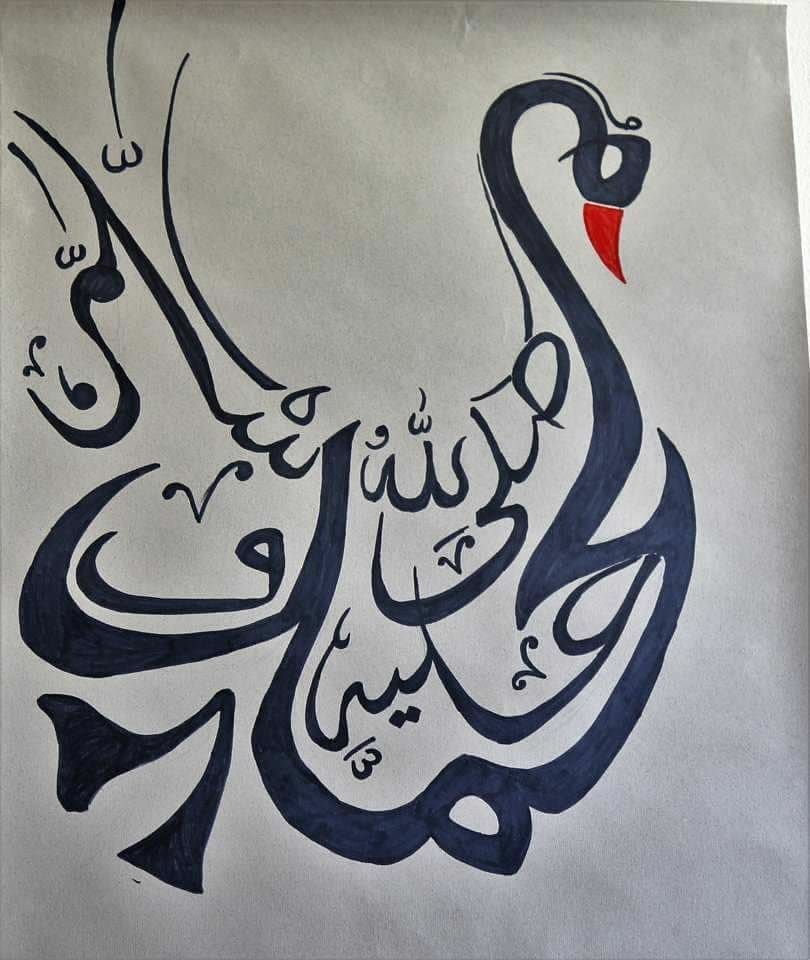 محمد
صلى الله
عليه
و
سلم